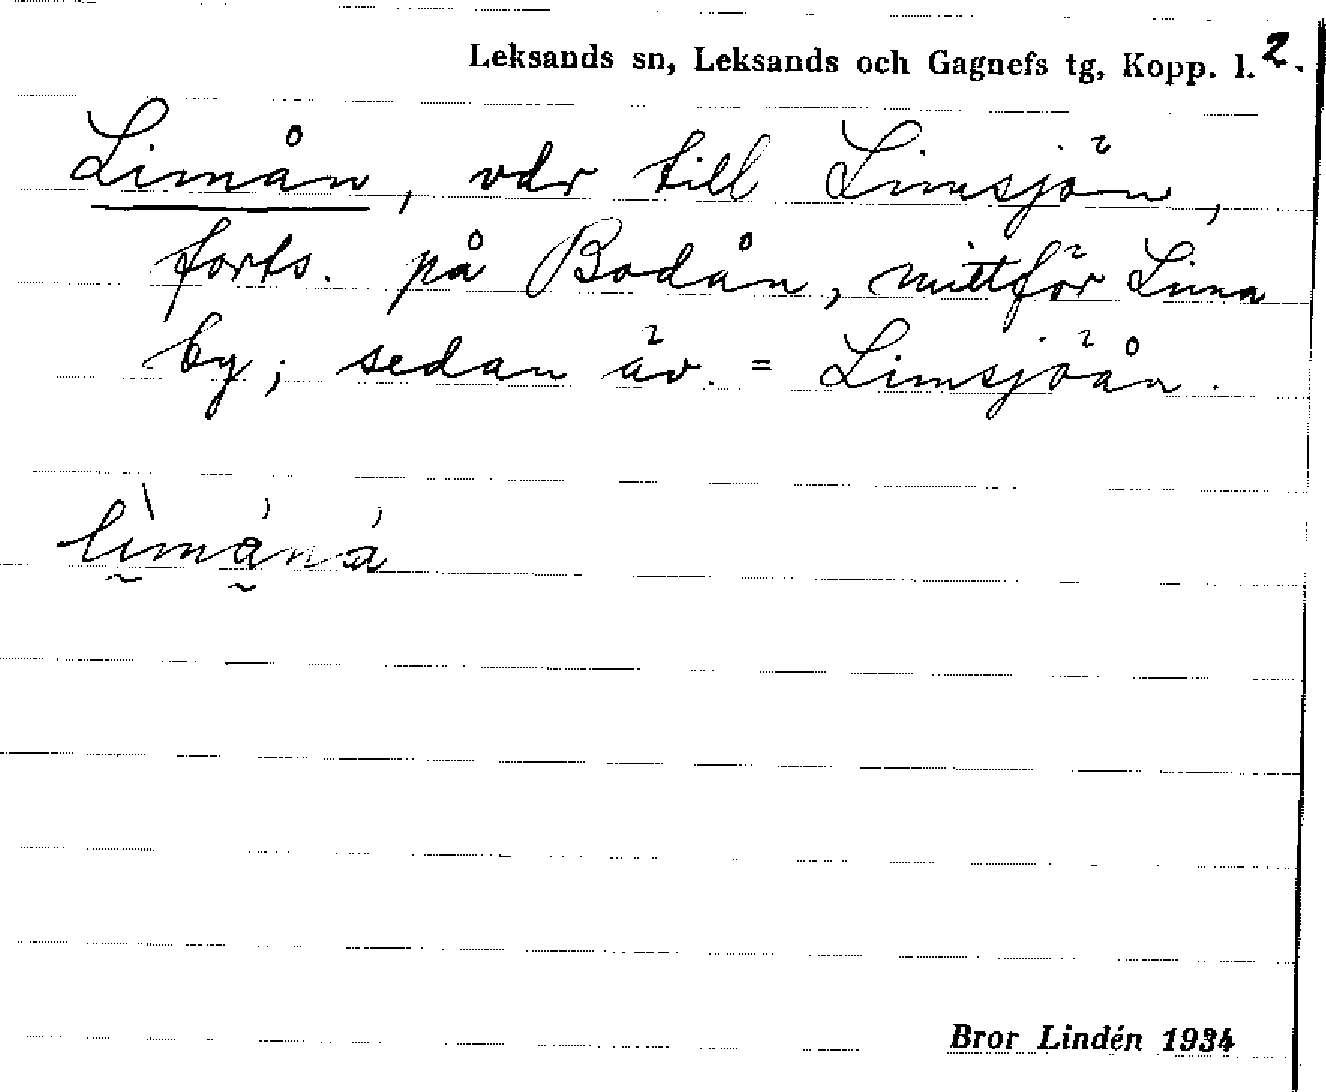 Leksands sn, Leksands och Gagnefs tg, Kopp. l. 2.
Limån, vdr till Limsjön,
forts. på Bodån, mittför Lima
by; sedan äv. = Limsjöån.
lìmåná
Bror Lindén 1934